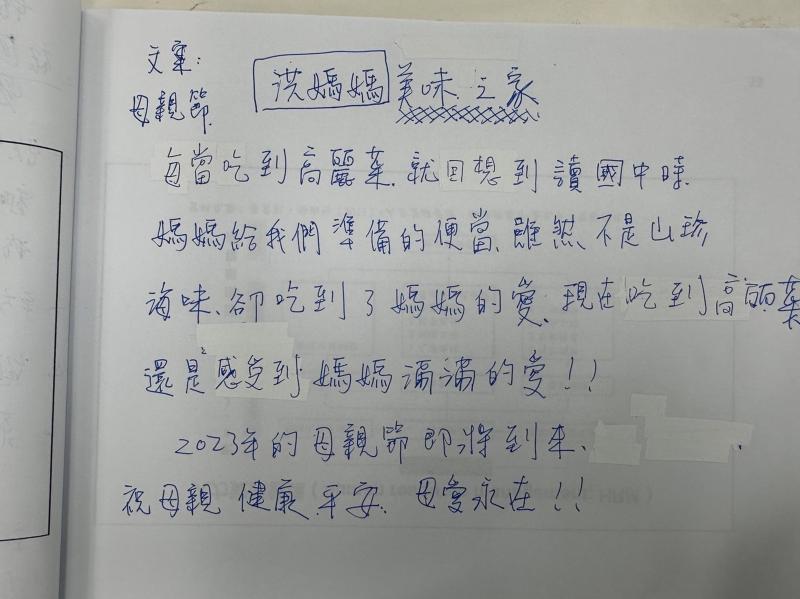 文案:
洪媽媽美味之家
母親節
每當吃到高麗菜、就回想到讀國中時
媽媽給我們準備的便當、雖然不是山珍
海味、卻吃到了媽媽的愛、現在吃到高麗菜
還是感受到媽媽滿滿的愛!!
2023年的母親節即將到來、
祝母親健康平安、母愛永在!!